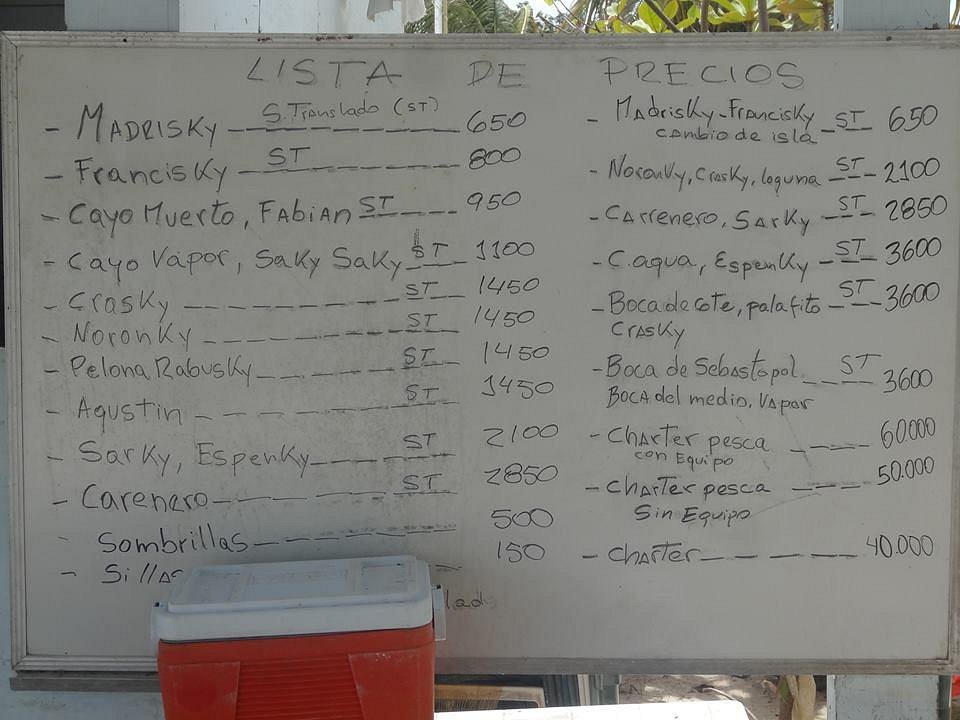 LISTA DE PRECIOS
- MADRISKY S. Translado (ST) 650
- FrancisKy ST 800
- Cayo Muerto, FABIAN ST 950
- Cayo Vapor, SaKy SaKy ST 1100
- CrasKy ST 1450
- NoronKy ST 1450
- Pelona RabusKy ST 1450
- Agustin ST 1450
- SarKy, EspenKy ST 2100
- Carenero ST 2850
- Sombrillas 500
- Sillas 150
- MadrisKy-FrancisKy ST 650
cambio de isla
- NoronKy, CrasKy, loguna ST 2100
- Carrenero, SarKy ST 2850
- C. agua, EspenKy ST 3600
- Boca de Cote, palafito ST 3600
CrasKy
- Boca de Sebastopol ST 3600
Boca del medio, Vapor
- Charter pesca 60.000
con Equipo
- Charter pesca 50.000
Sin Equipo
- Charter 40.000